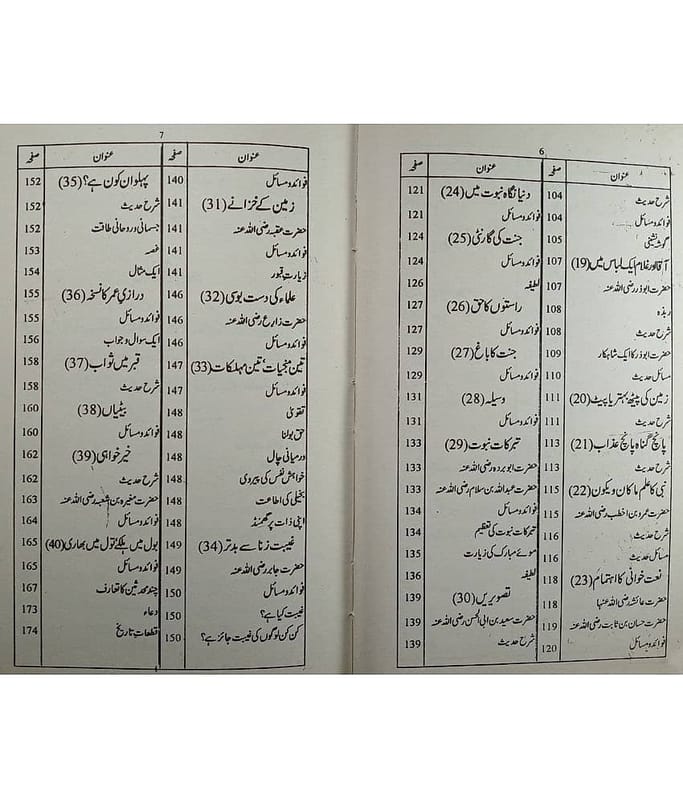 6
عنوان صفحہ
شرح حدیث 104
فوائد و مسائل 104
گوشہ نشینی 105
آقا اور غلام ایک لباس میں (19) 107
حضرت ابوذر رضی اللہ عنہ 107
ربذہ 108
شرح حدیث 108
حضرت ابوذر کا ایک شاہکار 109
مسائل حدیث 110
زمین کی پیٹھ بہتر یا پیٹ (20) 111
شرح حدیث 111
پانچ گناہ پانچ عذاب (21) 113
شرح حدیث 113
نبی کا علم ماکان و یکون (22) 115
حضرت عمرو بن اخطب رضی اللہ عنہ 115
شرح حدیث 116
مسائل حدیث 116
نعت خوانی کا اہتمام (23) 118
حضرت عائشہ رضی اللہ عنہا 118
حضرت حسان بن ثابت رضی اللہ عنہ 119
فوائد و مسائل 120
عنوان صفحہ
دنیا نگاہ نبوت میں (24) 121
فوائد و مسائل 121
جنت کی گارنٹی (25) 124
فوائد و مسائل 124
لطیفہ 126
راستوں کا حق (26) 127
فوائد و مسائل 127
جنت کا باغ (27) 129
فوائد و مسائل 129
وسیلہ (28) 131
فوائد و مسائل 131
تبرکات نبوت (29) 133
حضرت ابو بردہ رضی اللہ عنہ 133
حضرت عبداللہ بن سلام رضی اللہ عنہ 133
فوائد و مسائل 134
تبرکات نبوت کی تعظیم 134
موئے مبارک کی زیارت 135
لطیفہ 136
تصویریں (30) 139
حضرت سعید بن ابی الحسن رضی اللہ عنہ 139
شرح حدیث 139
7
عنوان صفحہ
فوائد و مسائل 140
زمین کے خزانے (31) 141
حضرت عقبہ رضی اللہ عنہ 141
فوائد و مسائل 141
زیارت قبور 141
علماء کی دست بوسی (32) 146
حضرت زارع رضی اللہ عنہ 146
فوائد و مسائل 146
تین منجیات، تین مہلکات (33) 147
فوائد و مسائل 147
تقویٰ 148
حق بولنا 148
درمیانی چال 148
خواہش نفس کی پیروی 148
بخیلی کی اطاعت 148
اپنی ذات پر گھمنڈ 148
غیبت زنا سے بدتر (34) 149
حضرت جابر رضی اللہ عنہ 149
فوائد و مسائل 150
غیبت کیا ہے؟ 150
کن کن لوگوں کی غیبت جائز ہے؟ 150
عنوان صفحہ
پہلوان کون ہے؟ (35) 152
شرح حدیث 152
جسمانی و روحانی طاقت 152
غصہ 153
ایک مثال 154
درازی عمر کا نسخہ (36) 155
فوائد و مسائل 155
ایک سوال و جواب 156
قبر میں ثواب (37) 158
شرح حدیث 158
بیٹیاں (38) 160
فوائد و مسائل 160
خیر خواہی (39) 162
شرح حدیث 162
حضرت مغیرہ بن شعبہ رضی اللہ عنہ 163
فوائد و مسائل 164
بول میں ہلکے تول میں بھاری (40) 165
فوائد و مسائل 165
چند محدثین کا تعارف 167
دعاء 173
قطعات تاریخ 174